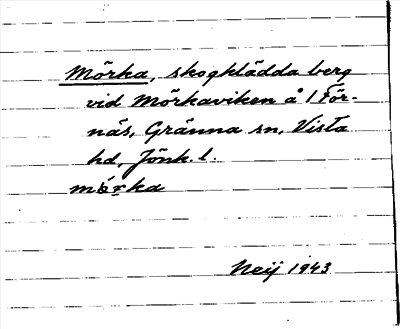 Mörka, skogklädda berg
vid Mörkaviken å 1 För-
näs, Gränna sn, Vista
hd, Jönk. l.
mörka
Neij 1943